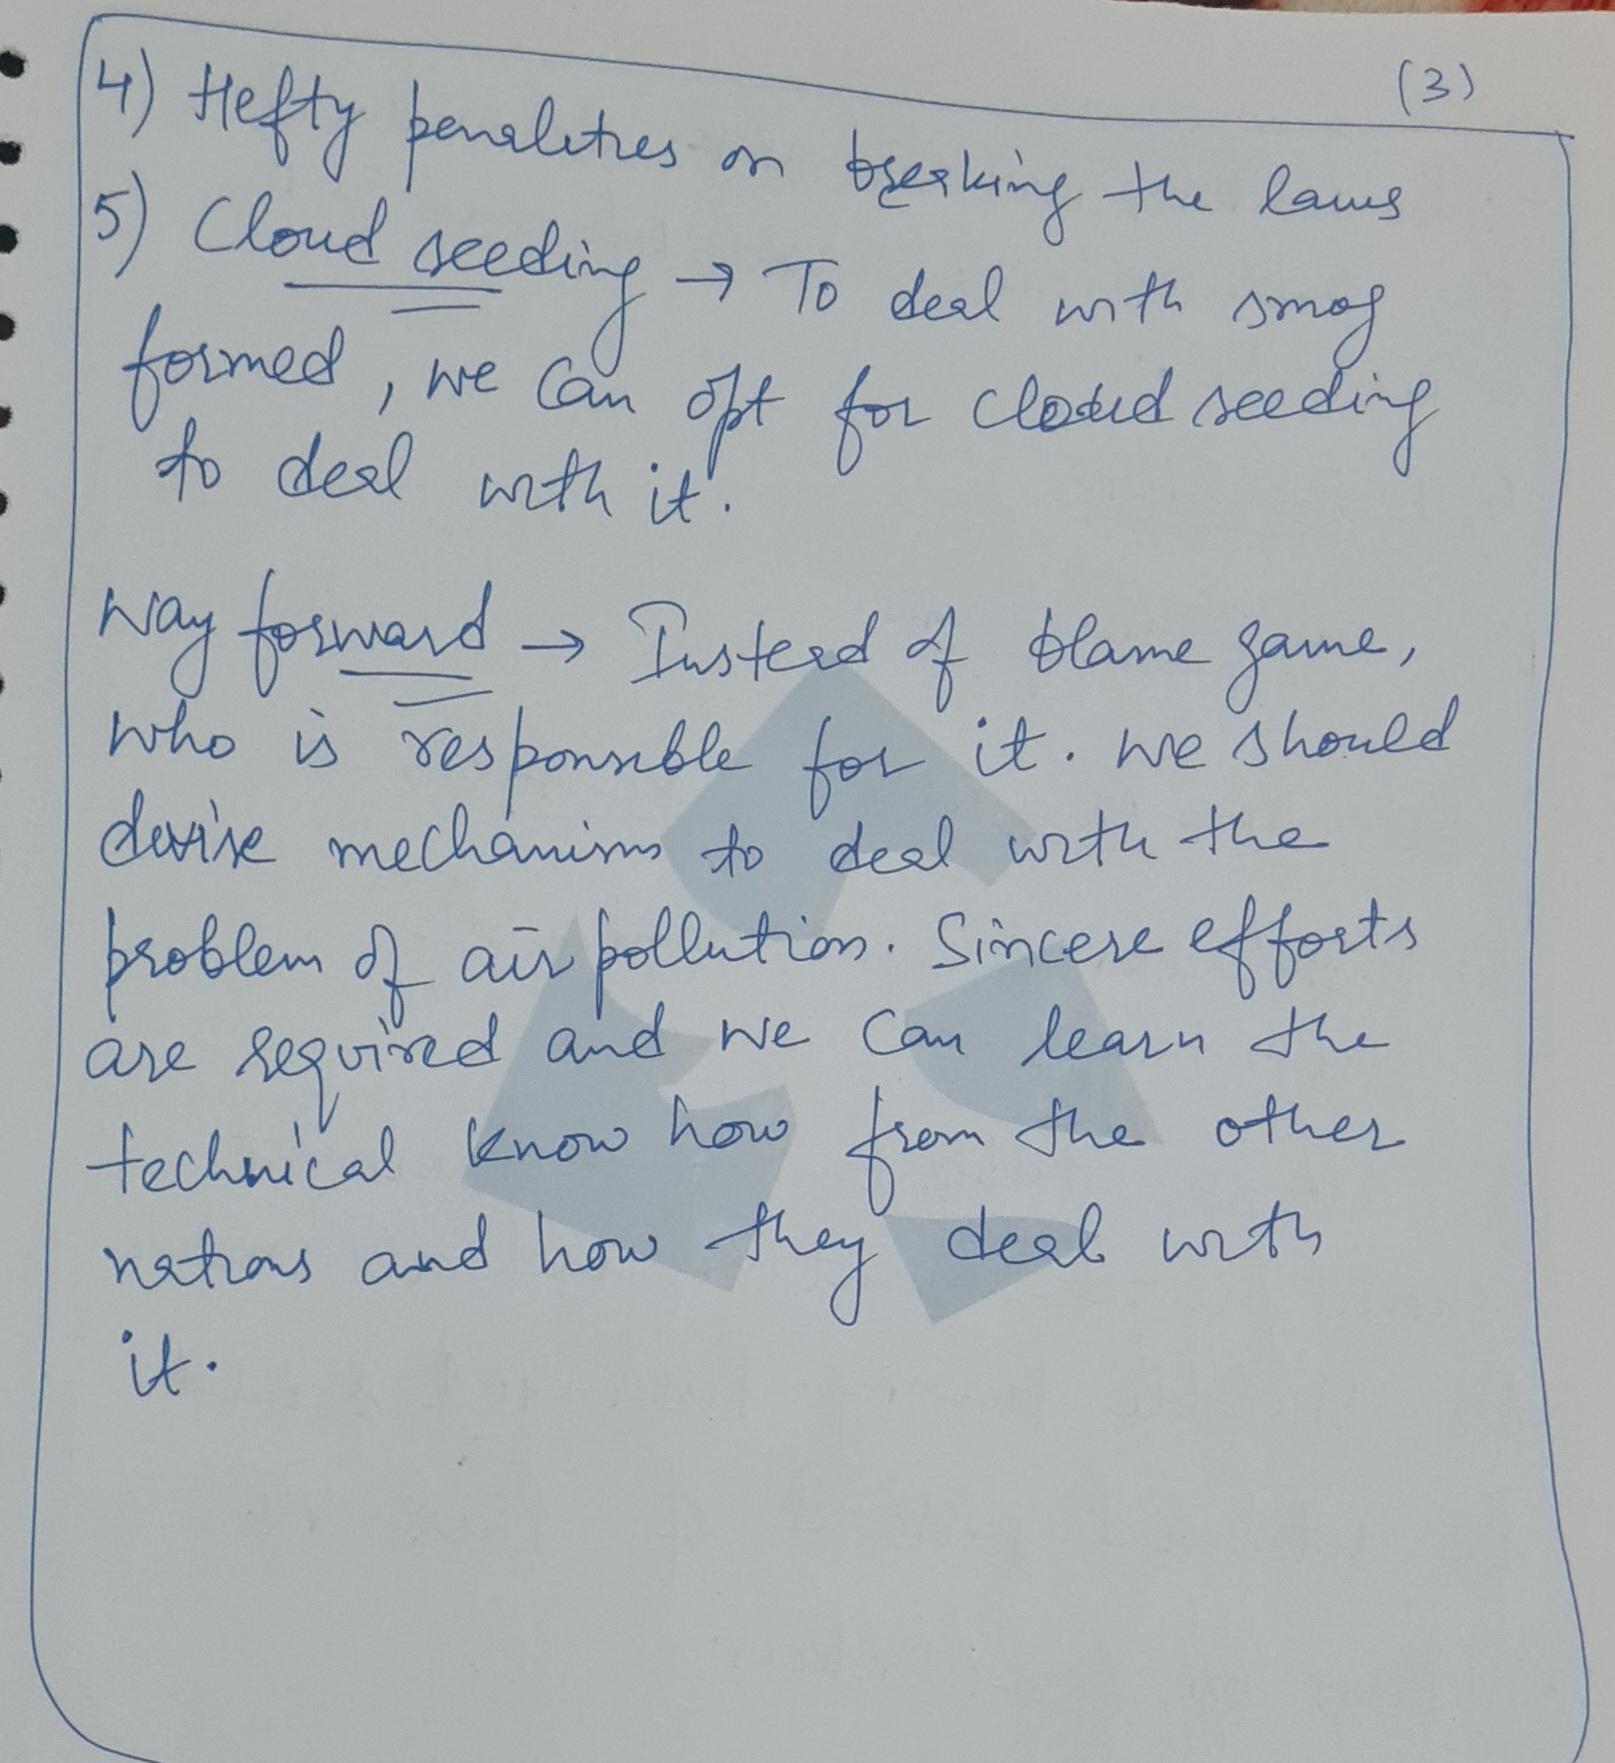 (3)
4) Hefty penalities on breaking the laws
5) Cloud seeding → To deal with smog
formed, we can opt for cloud seeding
to deal with it.
Way forward → Instead of blame game,
who is responsible for it. we should
devise mechanisms to deal with the
problem of air pollution. Sincere efforts
are required and we can learn the
technical know how from the other
nations and how they deal with
it.